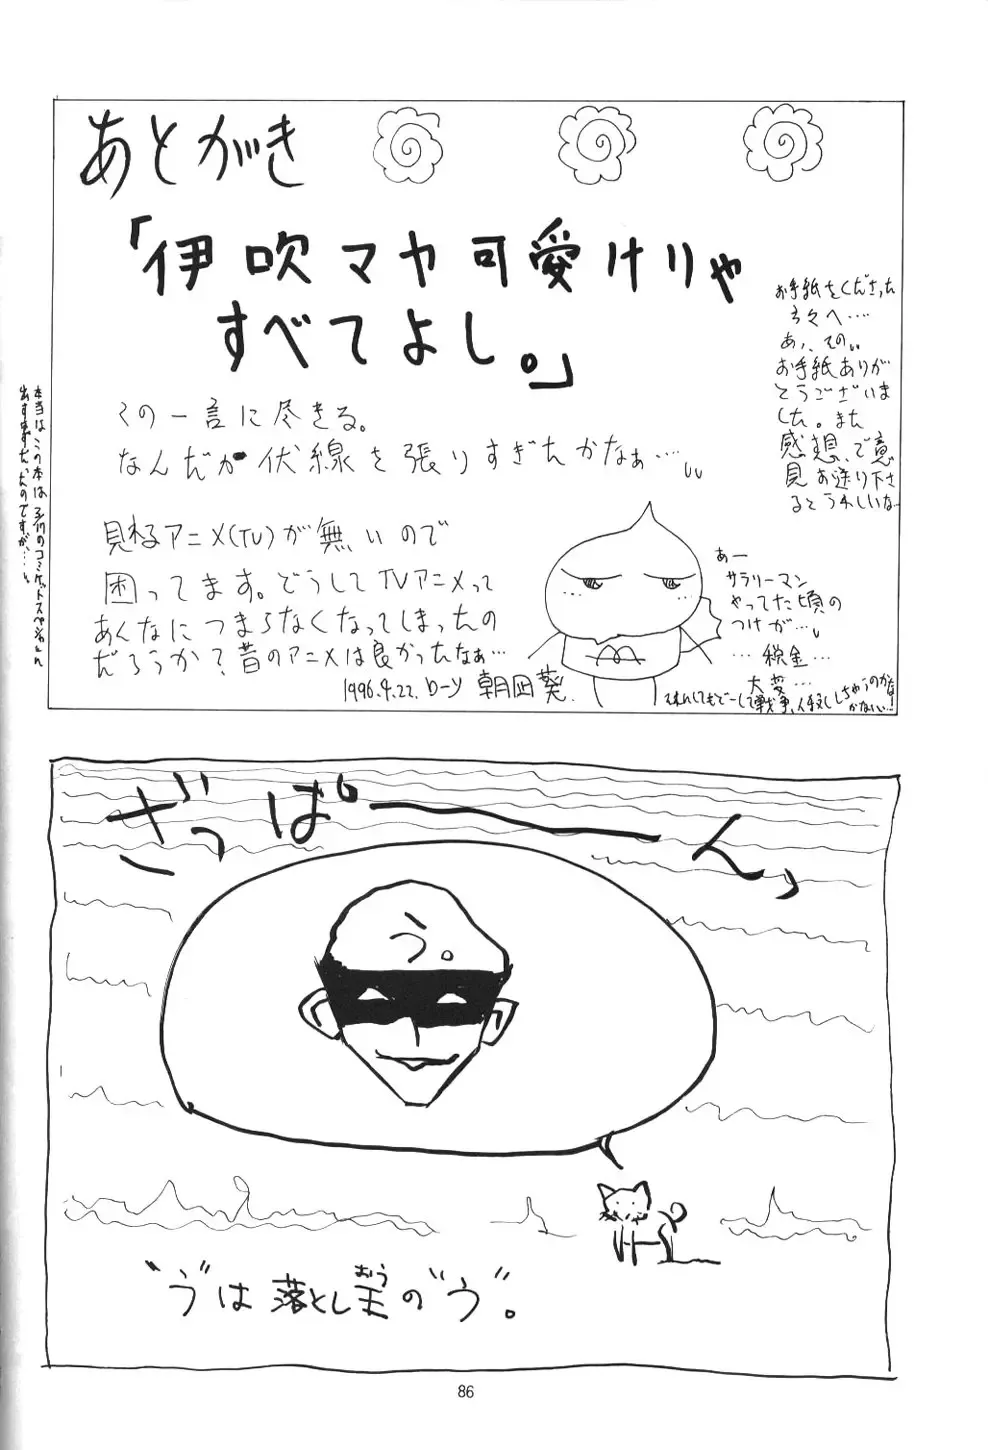 あとがき
「伊吹マヤ可愛けりゃ
すべてよし。」
この一言に尽きる。
なんだか伏線を張りすぎたかなぁ…
見れるアニメ(TV)が無いので
困ってます。どうしてTVアニメって
あんなにつまらなくなってしまったの
だろうか?昔のアニメは良かったなぁ…
1996.4.22. ローソ 朝凪葵
お手紙をくださった
方々へ…
あっ、その、、
お手紙ありが
とうございま
した。また
感想、ご意
見お送り下さ
るとうれしいな
あー
サラリーマン
やってた頃の
つけが…
…税金…
大変…
本当はこの本は3/17のコミケットスペシャルに
出すはずだったのですが…
ざっぱーーん
う。
"う"は落とし王の"う"。
おう
86